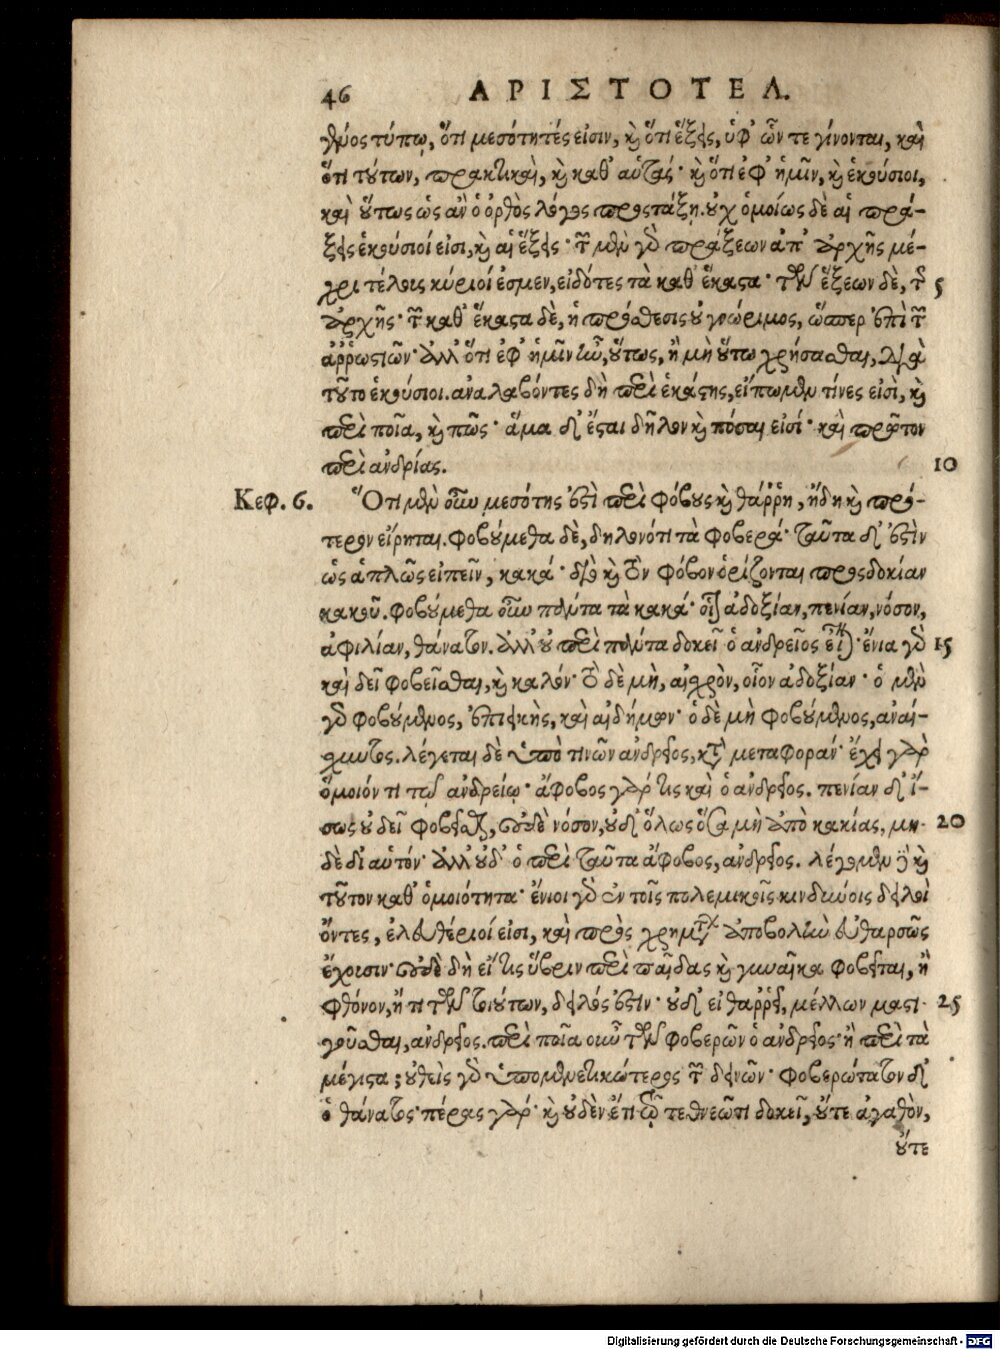 46 ΑΡΙΣΤΟΤΕΛ.
γένος τύπῳ, ὅτι μεσότητές εἰσιν, καὶ ὅτι ἕξεις, ὑφ' ὧν τε γίνονται, καὶ
ὅτι τούτων, πρακτικαὶ, καὶ καθ' αὑτάς· καὶ ὅτι ἐφ' ἡμῖν, καὶ ἑκούσιοι,
καὶ οὕτως ὡς ἂν ὁ ὀρθὸς λόγος προστάξῃ. οὐχ ὁμοίως δὲ αἱ πρά-
ξεις ἑκούσιοί εἰσι, καὶ αἱ ἕξεις· τῶν μὲν γὰρ πράξεων ἀπ' ἀρχῆς μέ-
χρι τέλους κύριοί ἐσμεν, εἰδότες τὰ καθ' ἕκαστα· τῶν ἕξεων δὲ, τῆς 5
ἀρχῆς· τῶν καθ' ἕκαστα δὲ, ἡ πρόσθεσις οὐ γνώριμος, ὥσπερ ἐπὶ τῶν
ἀῤῥωστιῶν· ἀλλ' ὅτι ἐφ' ἡμῖν ἦν, οὕτως, ἢ μὴ οὕτω χρήσασθαι, διὰ
τοῦτο ἑκούσιοι. ἀναλαβόντες δὴ περὶ ἑκάστης, εἴπωμεν τίνες εἰσὶ, καὶ
περὶ ποῖα, καὶ πῶς· ἅμα δ' ἔσται δῆλον καὶ πόσαι εἰσί· καὶ πρῶτον
περὶ ἀνδρίας. 10
Κεφ. 6. Ὅτι μὲν οὖν μεσότης ἐστὶ περὶ φόβους καὶ θάῤῥη, ἤδη καὶ πρό-
τερον εἴρηται. φοβούμεθα δὲ, δηλονότι τὰ φοβερά· ταῦτα δ' ἐστὶν
ὡς ἁπλῶς εἰπεῖν, κακά· διὸ καὶ τὸν φόβον ὁρίζονται προσδοκίαν
κακοῦ. φοβούμεθα οὖν πάντα τὰ κακά· οἷον ἀδοξίαν, πενίαν, νόσον,
ἀφιλίαν, θάνατον. ἀλλ' οὐ περὶ πάντα δοκεῖ ὁ ἀνδρεῖος εἶναι· ἔνια γὰρ 15
καὶ δεῖ φοβεῖσθαι, καὶ καλόν· τὸ δὲ μὴ, αἰσχρὸν, οἷον ἀδοξίαν· ὁ μὲν
γὰρ φοβούμενος, ἐπιεικὴς, καὶ αἰδήμων· ὁ δὲ μὴ φοβούμενος, ἀναί-
σχυντος. λέγεται δὲ ὑπό τινῶν ἀνδρεῖος, κατὰ μεταφοράν· ἔχει γάρ
ὅμοιόν τι τῷ ἀνδρείῳ· ἄφοβος γάρ τις καὶ ὁ ἀνδρεῖος. πενίαν δ' ἴ-
σως οὐ δεῖ φοβεῖσθαι, οὐδὲ νόσον, οὐδ' ὅλως ὅσα μὴ ἀπὸ κακίας, μη- 20
δὲ δι αὑτόν· ἀλλ' οὐδ' ὁ περὶ ταῦτα ἄφοβος, ἀνδρεῖος. λέγομεν δὲ καὶ
τοῦτον καθ' ὁμοιότητα· ἔνιοι γὰρ ἐν τοῖς πολεμικοῖς κινδύνοις δειλοὶ
ὄντες, ἐλευθέριοί εἰσι, καὶ πρὸς χρημάτων ἀποβολὴν εὐθαρσῶς
ἔχουσιν· οὐδὲ δὴ εἴ τις ὕβριν περὶ παῖδας καὶ γυναῖκα φοβεῖται, ἢ
φθόνον, ἤ τι τῶν τοιούτων, δειλός ἐστιν· οὐδ' εἰ θαῤῥεῖ, μέλλων μαστι- 25
γοῦσθαι, ἀνδρεῖος. περὶ ποῖα οὖν τῶν φοβερῶν ὁ ἀνδρεῖος· ἢ περὶ τὰ
μέγιστα; οὐθεὶς γὰρ ὑπομενετικώτερος τῶν δεινῶν· φοβερώτατον δ'
ὁ θάνατος· πέρας γάρ· καὶ οὐδὲν ἔτι τῷ τεθνεῶτι δοκεῖ, οὔτε ἀγαθὸν,
οὔτε
Digitalisierung gefördert durch die Deutsche Forschungsgemeinschaft - DFG